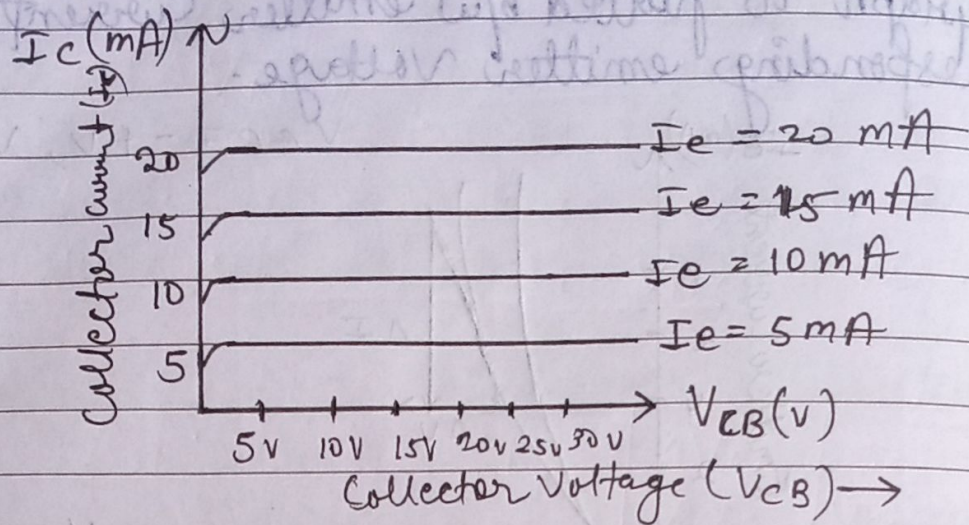 Ic (mA)
Collector current (Ic)
20
15
10
5
Ie = 20 mA
Ie = 15 mA
Ie = 10 mA
Ie = 5mA
5V 10V 15V 20V 25V 30V
VCB (V)
Collector Voltage (VCB) →